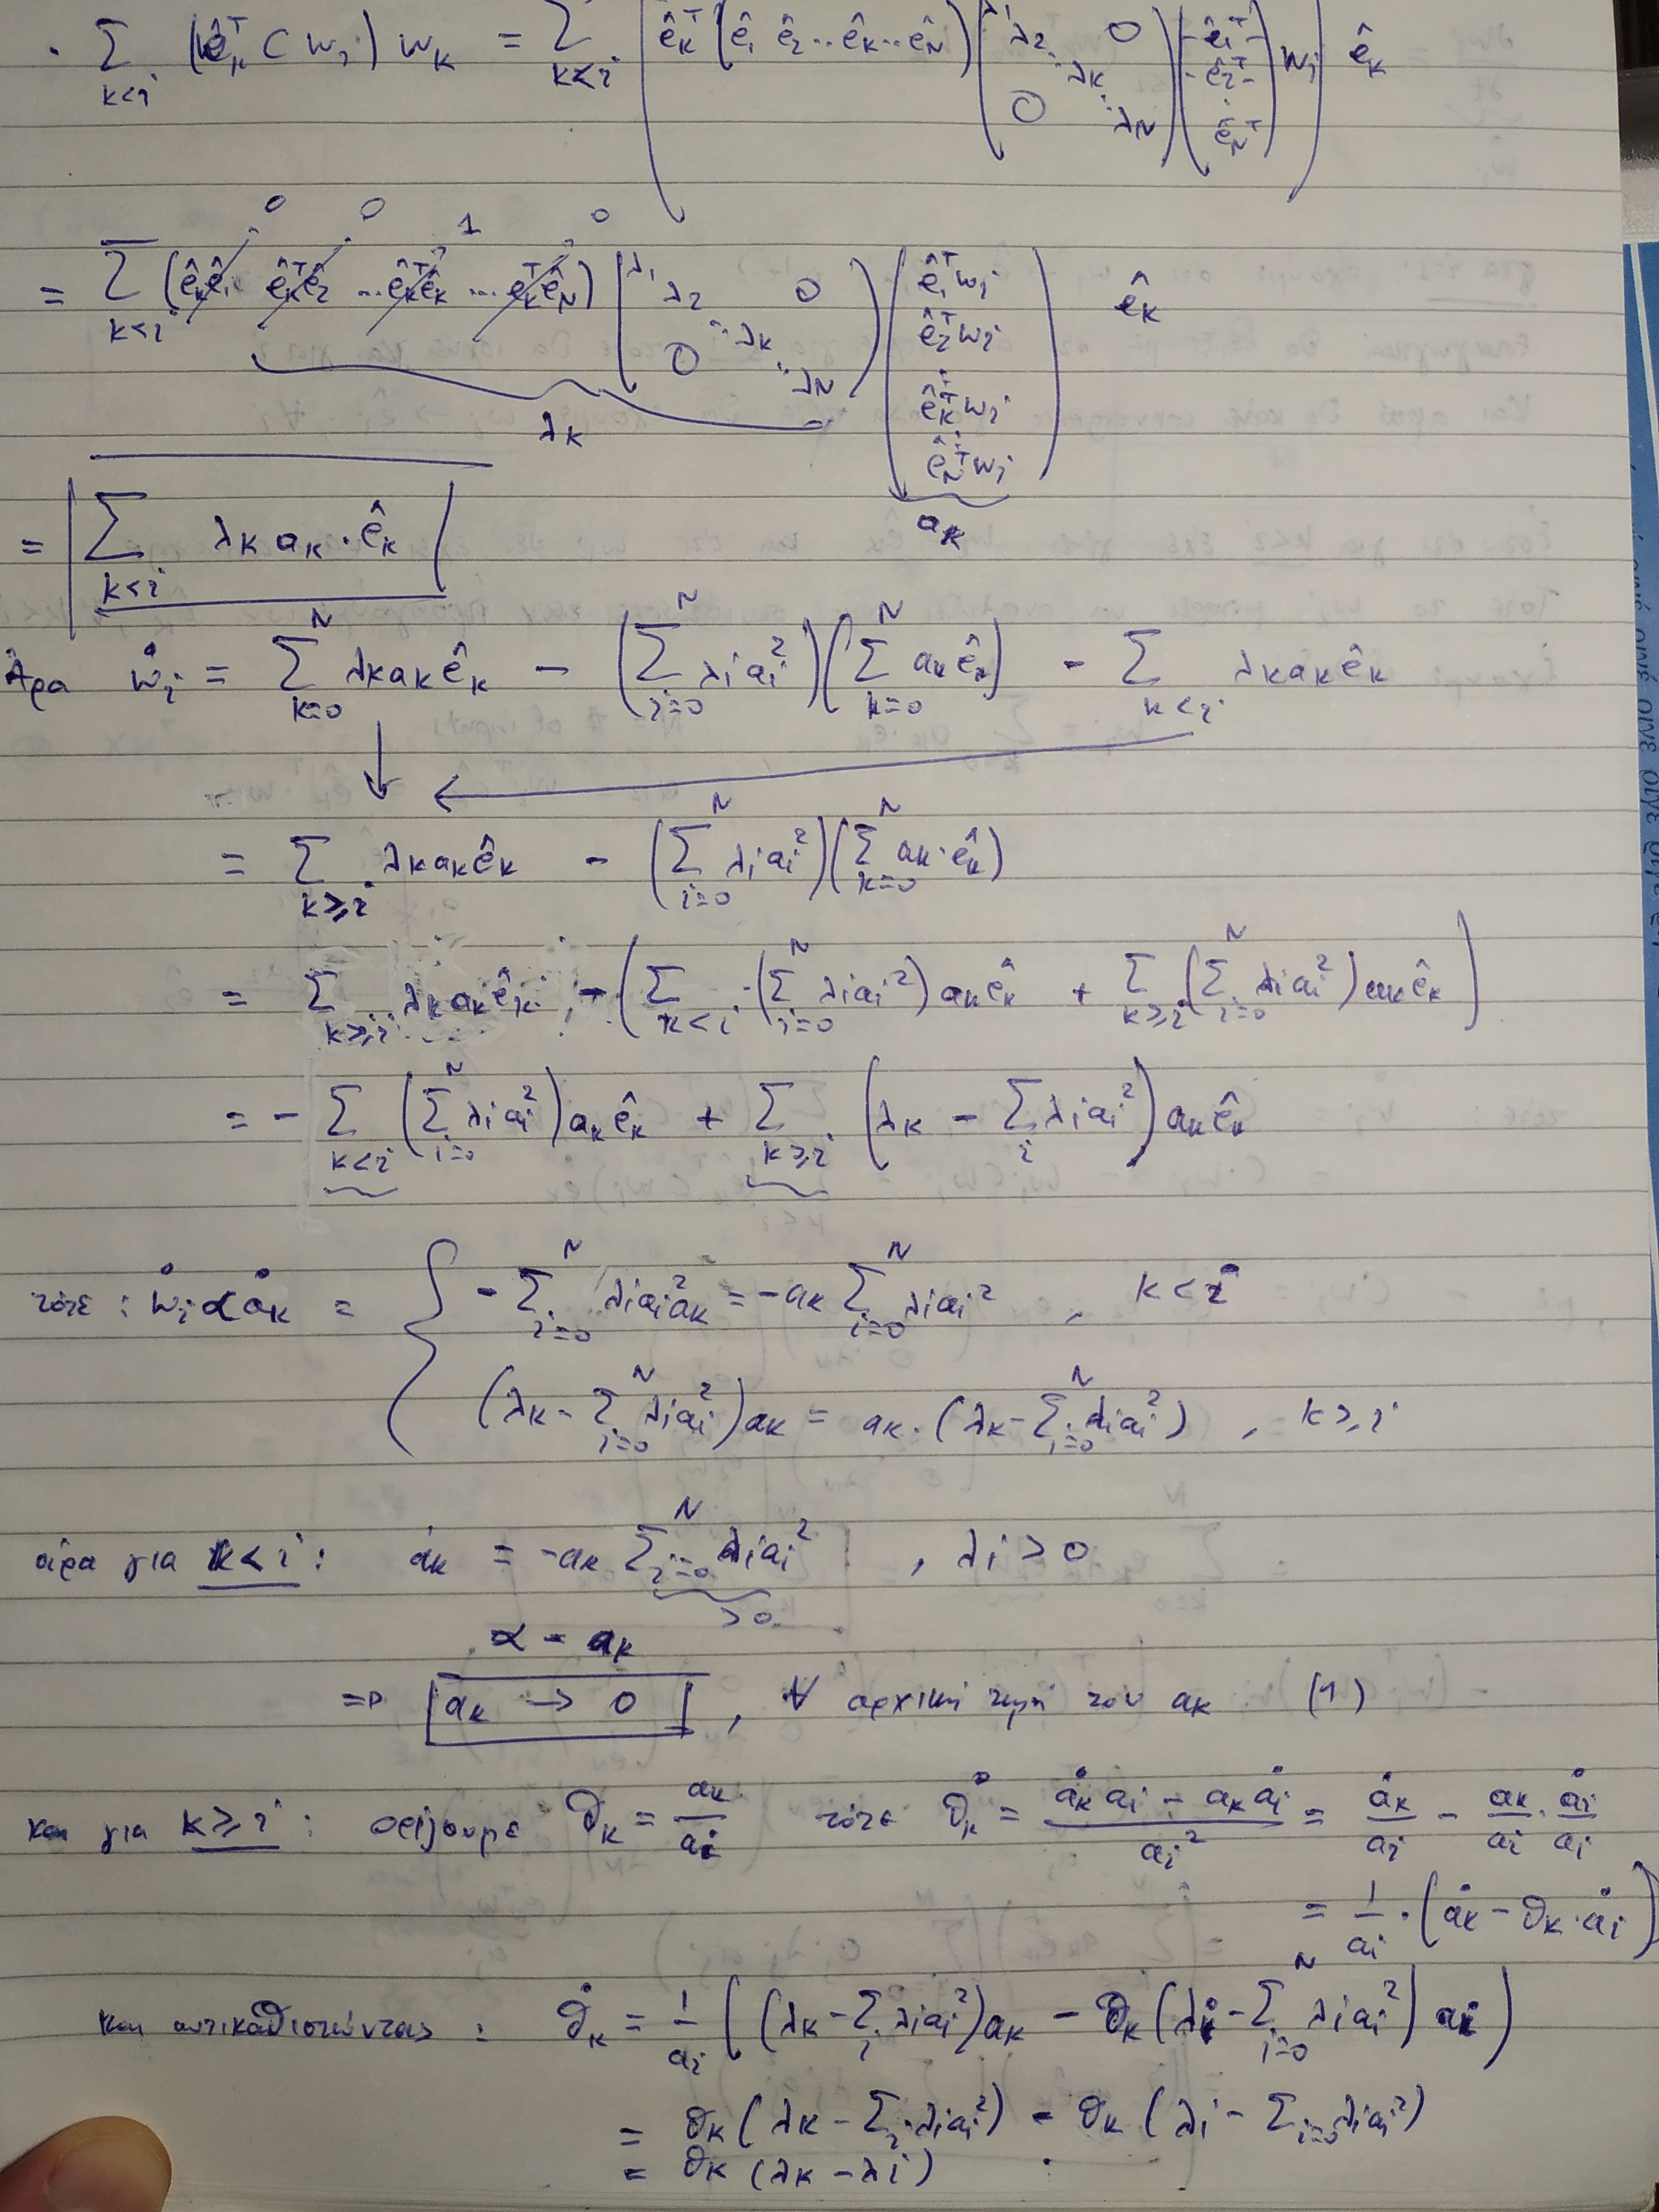 · Σ_{k<i} (ê_k^T C w_i) w_k = Σ_{k<i} ( ê_k^T (ê_1 ê_2 .. ê_k .. ê_N) ( λ_1 λ_2 0 λ_k ⋱ 0 λ_N ) ( -ê_1^T- -ê_2^T- ⋮ ê_N^T ) w_i ) ê_k
0 0 1 0
= Σ_{k<i} (ê_k^T ê_1 ê_k^T ê_2 ... ê_k^T ê_k ... ê_k^T ê_N) ( λ_1 λ_2 0 ⋱ λ_k 0 ⋱ λ_N ) ( ê_1^T w_i ê_2^T w_i ⋮ ê_k^T w_i ⋮ ê_N^T w_i ) ê_k
λ_k
a_k
= Σ_{k<i} λ_k a_k · ê_k
Άρα ẇ_i = Σ_{k=0}^N λ_k a_k ê_k - (Σ_{i=0}^N λ_i a_i^2)(Σ_{k=0}^N a_k ê_k) - Σ_{k<i} λ_k a_k ê_k
= Σ_{k≥i} λ_k a_k ê_k - (Σ_{i=0}^N λ_i a_i^2)(Σ_{k=0}^N a_k · ê_k)
= Σ_{k≥i} λ_k a_k ê_k - (Σ_{k<i} (Σ_{i=0}^N λ_i a_i^2) a_k ê_k + Σ_{k≥i} (Σ_{i=0}^N λ_i a_i^2) a_k ê_k)
= - Σ_{k<i} (Σ_{i=0}^N λ_i a_i^2) a_k ê_k + Σ_{k≥i} (λ_k - Σ_i λ_i a_i^2) a_k ê_k
τότε : ẇ_i α ȧ_k = { - Σ_{i=0}^N λ_i a_i^2 a_k = -a_k Σ_{i=0}^N λ_i a_i^2 , k<i
(λ_k - Σ_{i=0}^N λ_i a_i^2) a_k = a_k · (λ_k - Σ_{i=0}^N λ_i a_i^2) , k≥i
άρα για k<i : ȧ_k = -a_k Σ_{i=0}^N λ_i a_i^2 , λ_i > 0
>0
α - a_k
=> a_k → 0 , ∀ αρχική τιμή του a_k (1)
και για k≥i : ορίζουμε θ_k = a_k/a_i τότε θ̇_k = (ȧ_k a_i - a_k ȧ_i)/a_i^2 = ȧ_k/a_i - a_k/a_i · ȧ_i/a_i
= 1/a_i · (ȧ_k - θ_k · ȧ_i)
και αντικαθιστώντας : θ̇_k = 1/a_i ((λ_k - Σ_i λ_i a_i^2) a_k - θ_k (λ_i - Σ_{i=0}^N λ_i a_i^2) a_i)
= θ_k (λ_k - Σ_i λ_i a_i^2) - θ_k (λ_i - Σ_{i=0} λ_i a_i^2)
= θ_k (λ_k - λ_i)